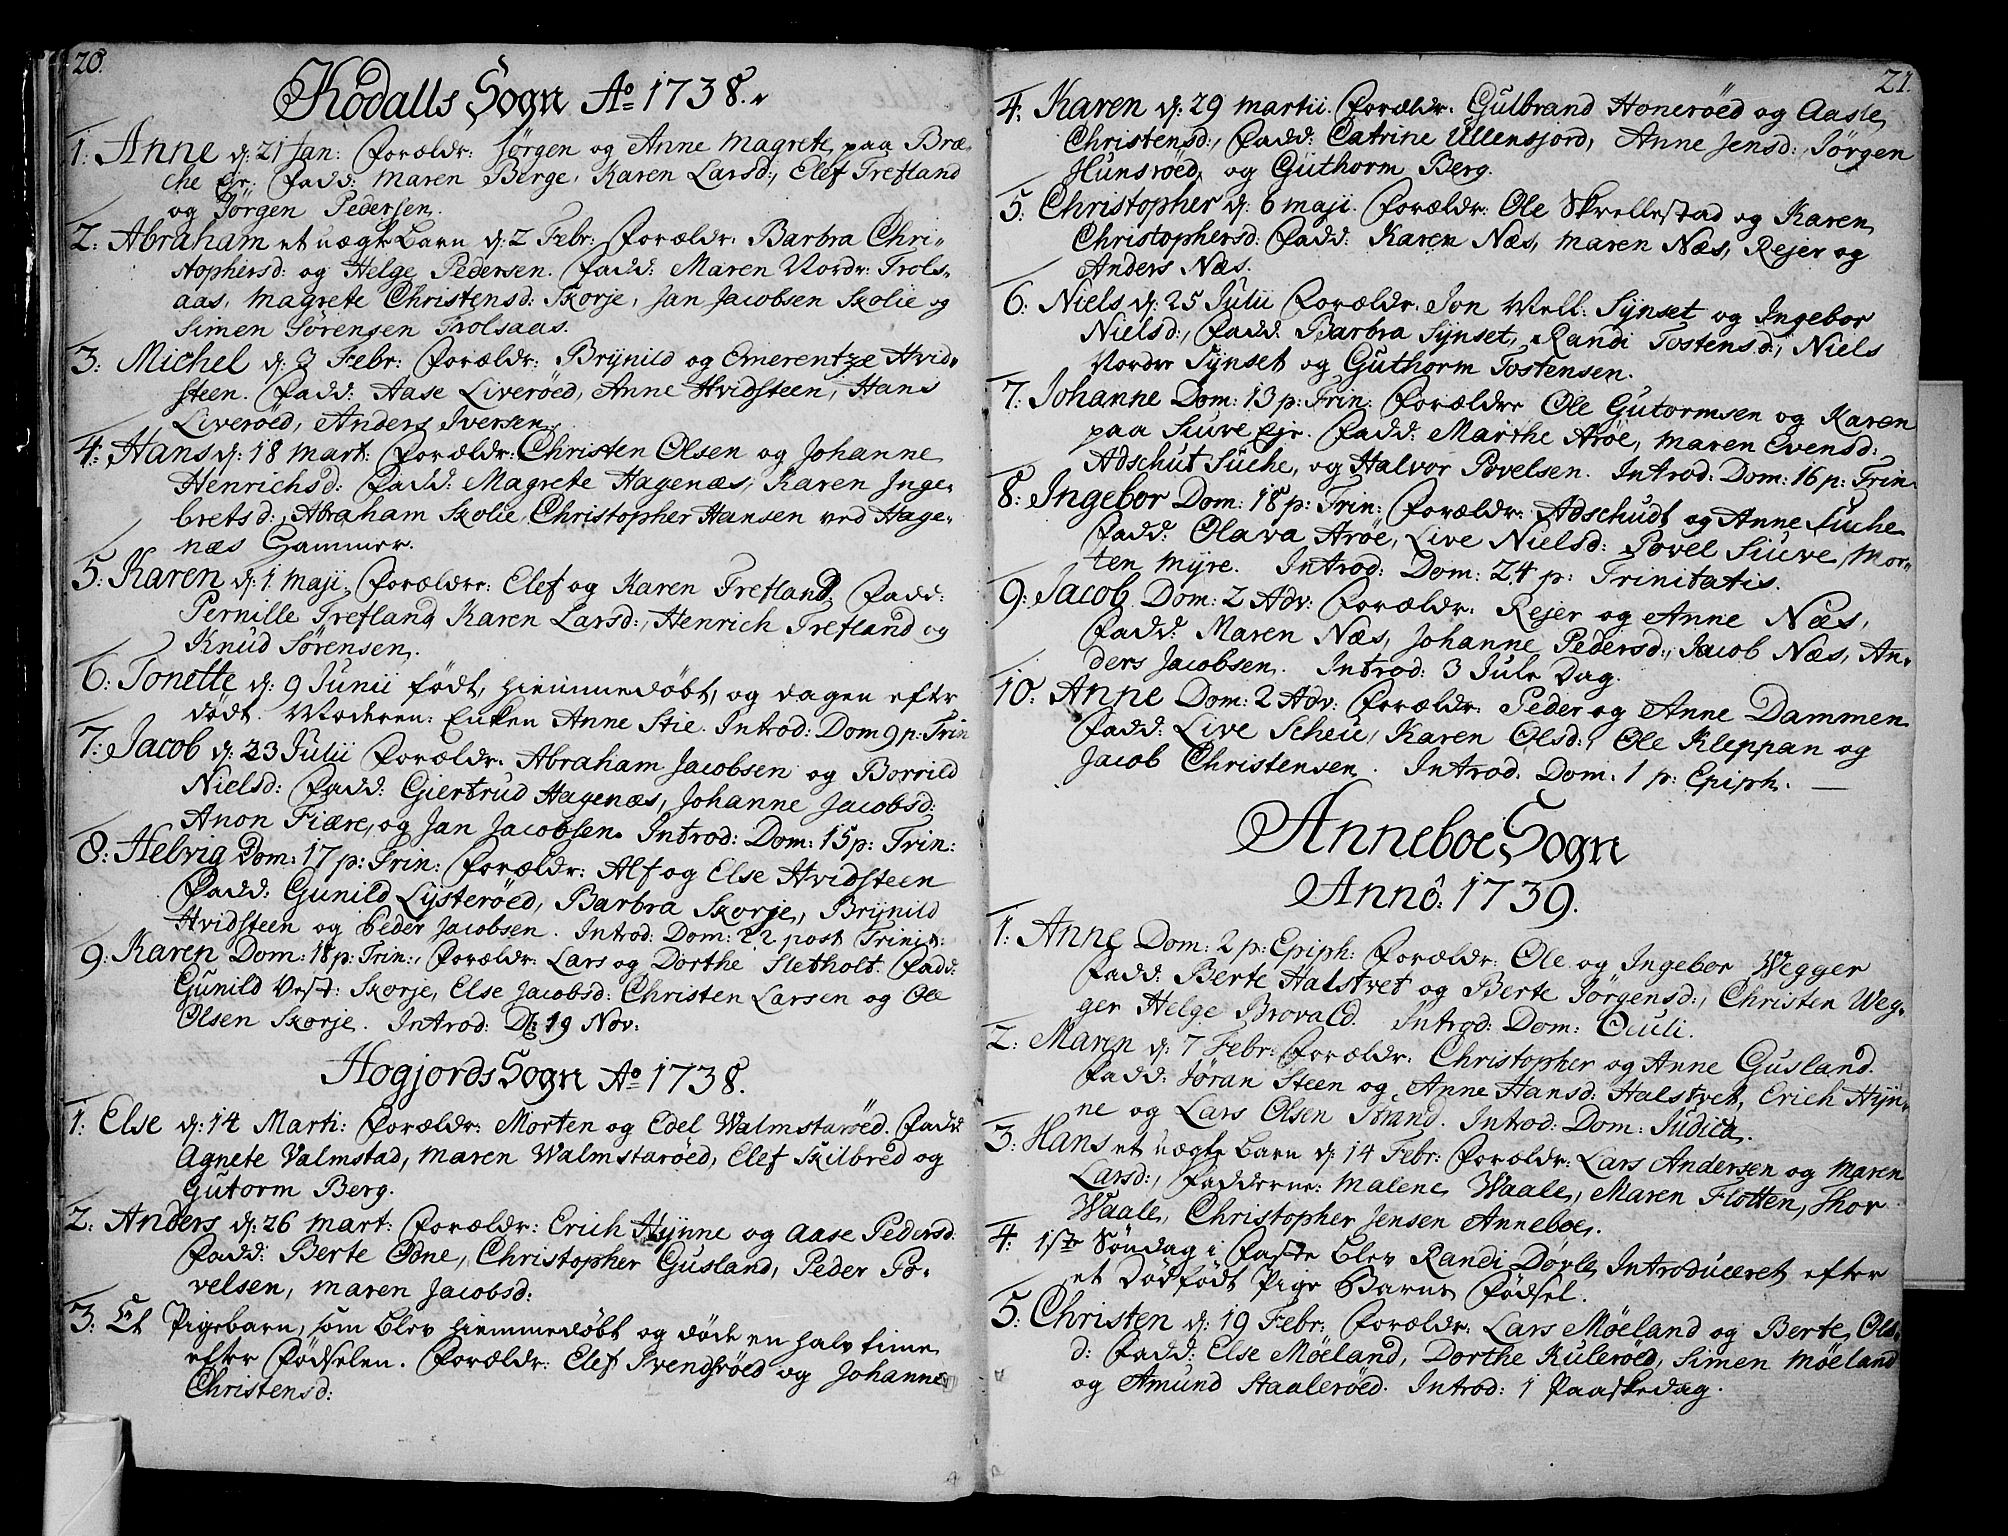 20.
Kodalls Sogn Ao 1738.
1: Anne d: 21 Jan: Forældr: Jørgen og Anne Magrete paa Bræ-
che Ejr: Fadd: Maren Berge, Karen Larsd:, Elef Trefland
og Jörgen Pedersen.
2: Abraham et uægte Barn d: 2 Febr: Forældr: Barbra Chri-
stophersd: og Helge Pedersen. Fadd: Maren Nordr: Trols-
aas, Magrete Christensd: Skorje, Jan Jacobsen Skolie og
Simen Sørensen Trolsaas.
3: Michel d: 3 Febr: Forældr: Brynild og Emerentze Hvid-
steen. Fadd: Aase Liverøed, Anne Hvidsteen, Hans
Liverøed, Anders Iversen.
4: Hans d: 18 Mart: Forældr: Christen Olsen og Johanne
Henrichsd: Fadd: Magrete Hagenæs, Karen Inge-
bretsd:, Abraham Skolie, Christopher Hansen ved Hage-
næs Hammer.
5: Karen d: 1 Maji. Forældre: Elef og Karen Trefland. Fadd:
Pernille Trefland, Karen Larsd:, Henrich Trefland og
Knud Sørensen.
6: Tonette d: 9 Junii født, hiemmedøbt, og dagen efter
dödt. Moderen: Enken Anne Stie. Introd: Dom 9 p: Trin
7: Jacob d: 23 Julii Forældr: Abraham Jacobsen og Borrild
Nielsd: Fadd: Giertrud Hagenæs, Johanne Jacobsd:
Anon Fiære, og Jan Jacobsen. Introd: Dom: 15 p: Trin:
8: Helvig Dom: 17 p: Trin: Forældr: Alf og Else Hvidsteen
Fadd: Gunild Lysterøed, Barbra Skorje, Brynild
Hvidsteen og Peder Jacobsen. Introd: Dom: 22 post Trinit:
9: Karen Dom: 18 p: Trin:, Forældr: Lars og Dorthe Sletholt. Fadd:
Gunild Vest: Skorje, Else Jacobsd: Christen Larsen og Ole
Olsen Skorje. Introd: D: 19 Nov:
Hogjords Sogn Ao 1738.
1: Else d: 14 Marti: Forældr: Morten og Edel Walmstarøed. Fadd:
Agnete Valmstad, Maren Walmstarøed, Elef Skilbred og
Gutorm Berg.
2: Anders d: 26 Mart: Forældr: Erich Hynne og Aase Pedersd:
Fadd: Berte Odne, Christopher Gusland, Peder Po-
velsen, Maren Jacobsd:
3: Et Pigebarn, som blev hiemmedøbt og døde en halv time
efter Fødselen. Forældr: Elef Svendsrøed og Johanne
Christensd:
21.
4: Karen d: 29 Martii. Forældr: Gulbrand Honerøed og Aasle
Christensd:, Fadd: Catrine Ullensfjord, Anne Jensd:, Jörgen
Hunsrøed, og Guthorm Berg.
5: Christopher d: 6 Maji. Forældr: Ole Skrellestad og Karen
Christophersd: Fadd: Karen Næs, Maren Næs, Rejer og
Anders Næs.
6: Niels d: 25 Julii Forældr: Jon Mell: Synset og Ingebor
Nielsd:, Fadd: Barbra Synset, Randi Tostensd:, Niels
Nordre Synset og Guthorm Tostensen.
7: Johanne Dom: 13 p: Trin: Forældre Ole Gutormsen og Karen
paa Siuve Ejr. Fadd: Marthe Arøe, Maren Evensd:
Adschut Suche, og Halvor Povelsen. Introd: Dom: 16 p: Trin.
8: Ingebor Dom: 18 p: Trin: Forældr: Adschudt og Anne Suche
Fadd: Olava Arøe, Live Nielsd: Povel Siuve, Mor-
ten Myre. Introd: Dom: 24 p: Trinitatis.
9: Jacob Dom: 2 Adv: Forældr: Rejer og Anne Næs,
Fadd: Maren Næs, Johanne Pedersd:, Jacob Næs, An-
ders Jacobsen. Introd: 3 Jule Dag.
10: Anne Dom: 2 Adv: Forældr: Peder og Anne Dammen
Fadd: Live Scheie, Karen Olsd:, Ole Kleppan og
Jacob Christensen. Introd: Dom: 1 p: Epiph. —
Anneboe Sogn
Anno: 1739.
1: Anne Dom: 2 p: Epiph: Forældr: Ole og Ingebor Wegger
Fadd: Berte Halstvet og Berte Jörgensd:, Christen Weg-
ger Helge Brovald. Introd: Dom: Oculi.
2: Maren d: 7 Febr: Forældr: Christopher og Anne Gusland.
Fadd: Jöran Steen og Anne Hansd: Halstvet, Erich Hyn-
ne og Lars Olsen Strand. Introd: Dom: Judica.
3: Hans et uægte Barn d: 14 Febr: Forældr: Lars Andersen og Maren
Larsd:, Fadderne: Malene Waale, Maren Flotten, Thor
Waale, Christopher Jensen Anneboe.
4: 1ste Söndag i Faste blev Randi Døvle Introduceret efter
et dödfödt Pige Barns Födsel.
5: Christen d: 19 Febr: Forældr: Lars Møeland og Berte Ols-
d: Fadd: Else Møeland, Dorthe Kulerøed, Simen Møeland
og Amund Staalerøed. Introd: 1 Paaskedag.